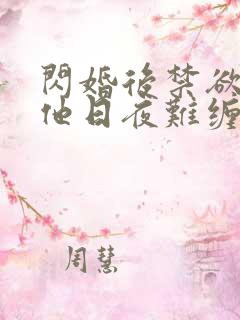 閃婚後禁欲
他日夜難缠
周慧